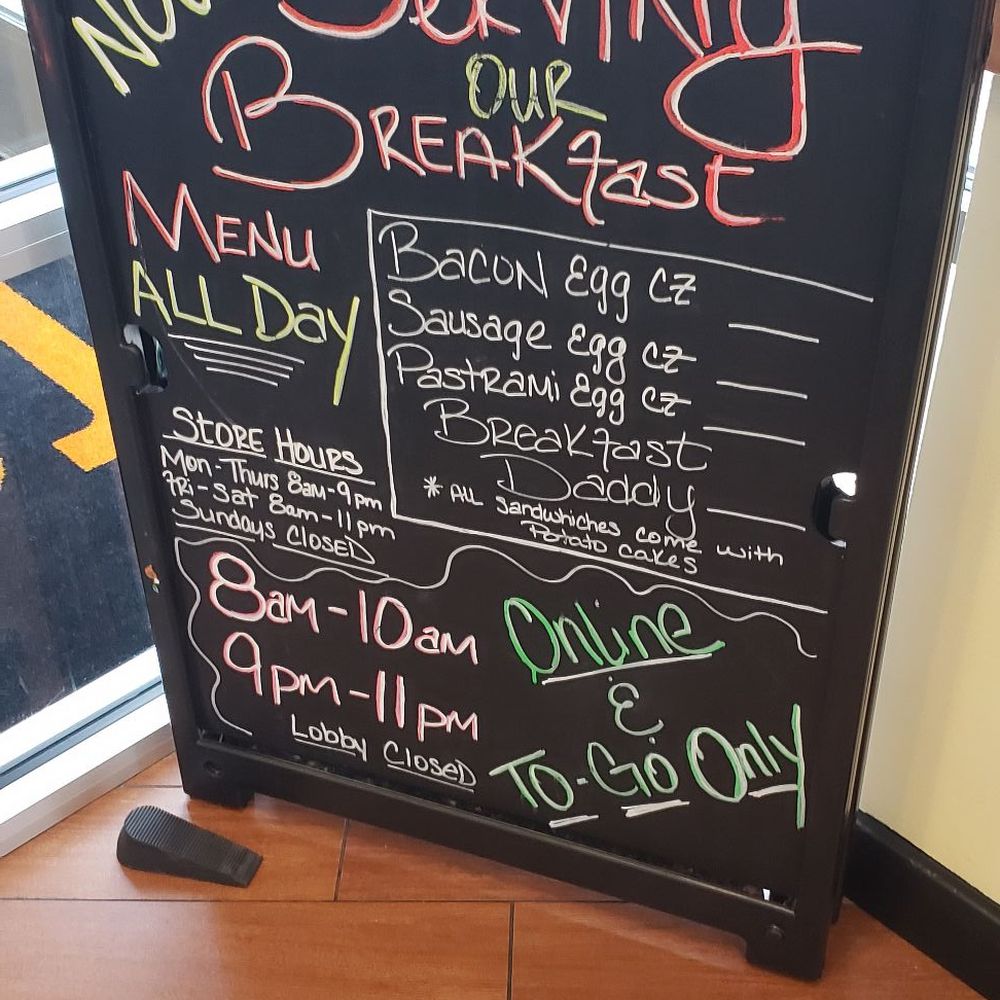 NOW SERVING
OUR
BREAKfast
MENU
ALL Day
BACON Egg CZ
Sausage Egg CZ
PastRAMi Egg CZ
BReakfast
Daddy
* ALL Sandwhiches come with
Potato cakes
STORE HOURS
Mon-Thurs 8am-9pm
FRi-Sat 8am-11pm
Sundays CloseD
8am-10am
9pm-11pm
Lobby CloseD
Online
&
To-Go Only